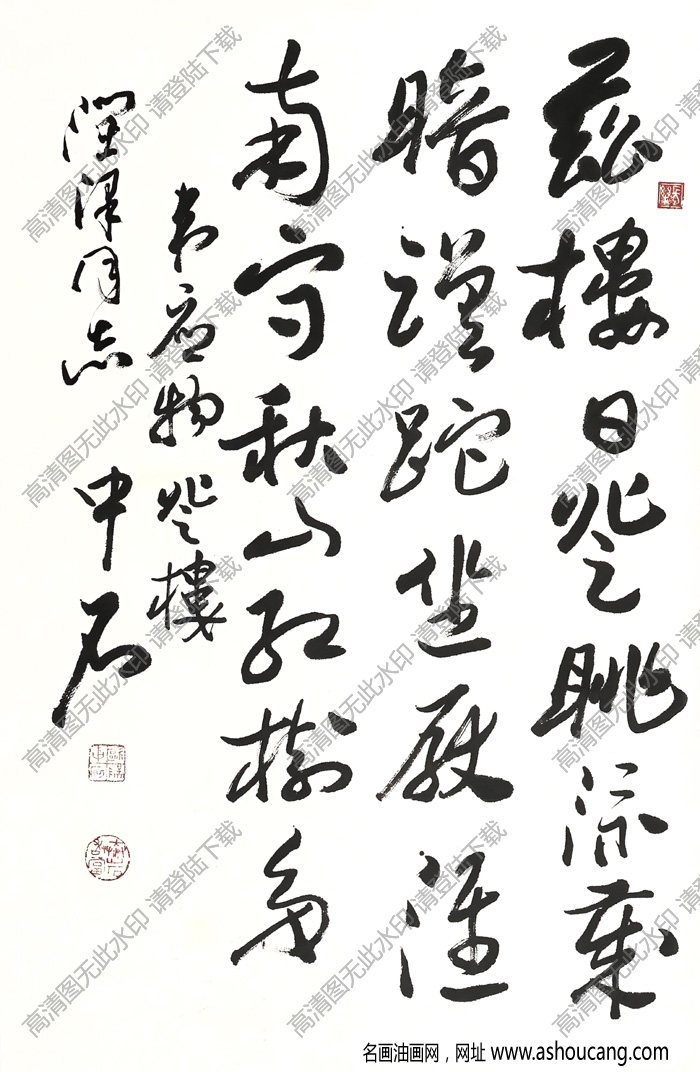 兹樓日登眺流歲
暗蹉跎坐厭淮
南守秋山紅樹多
韋應物登樓
潤澤同志 中石
高清图无此水印 请登陆下载
名画油画网，网址 www.ashoucang.com